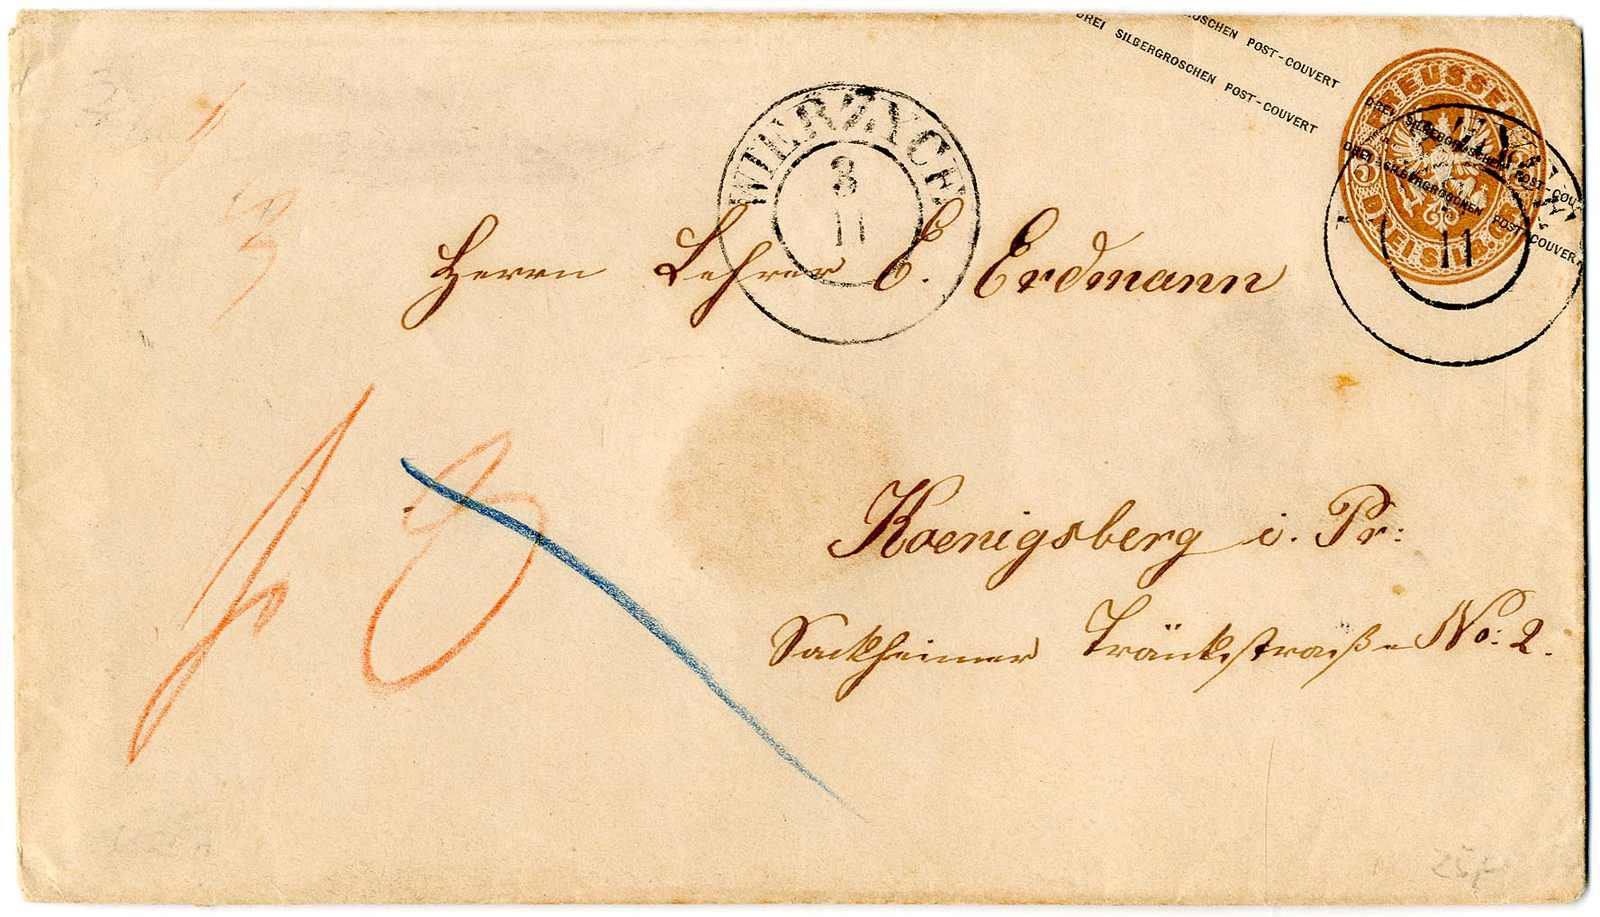 SILBERGROSCHEN POST-COUVERT
DREI SILBERGROSCHEN POST-COUVERT
DREI SILBERGROSCHEN POST-COUVERT
DREI SILBERGROSCHEN POST-COUVERT
PREUSSEN
DREI SILB. GR.
3
11
WIERZYCE
3
11
Herrn Lehrer E. Erdmann
Koenigsberg i. Pr:
Sackheimer Tränkstraße No: 2.